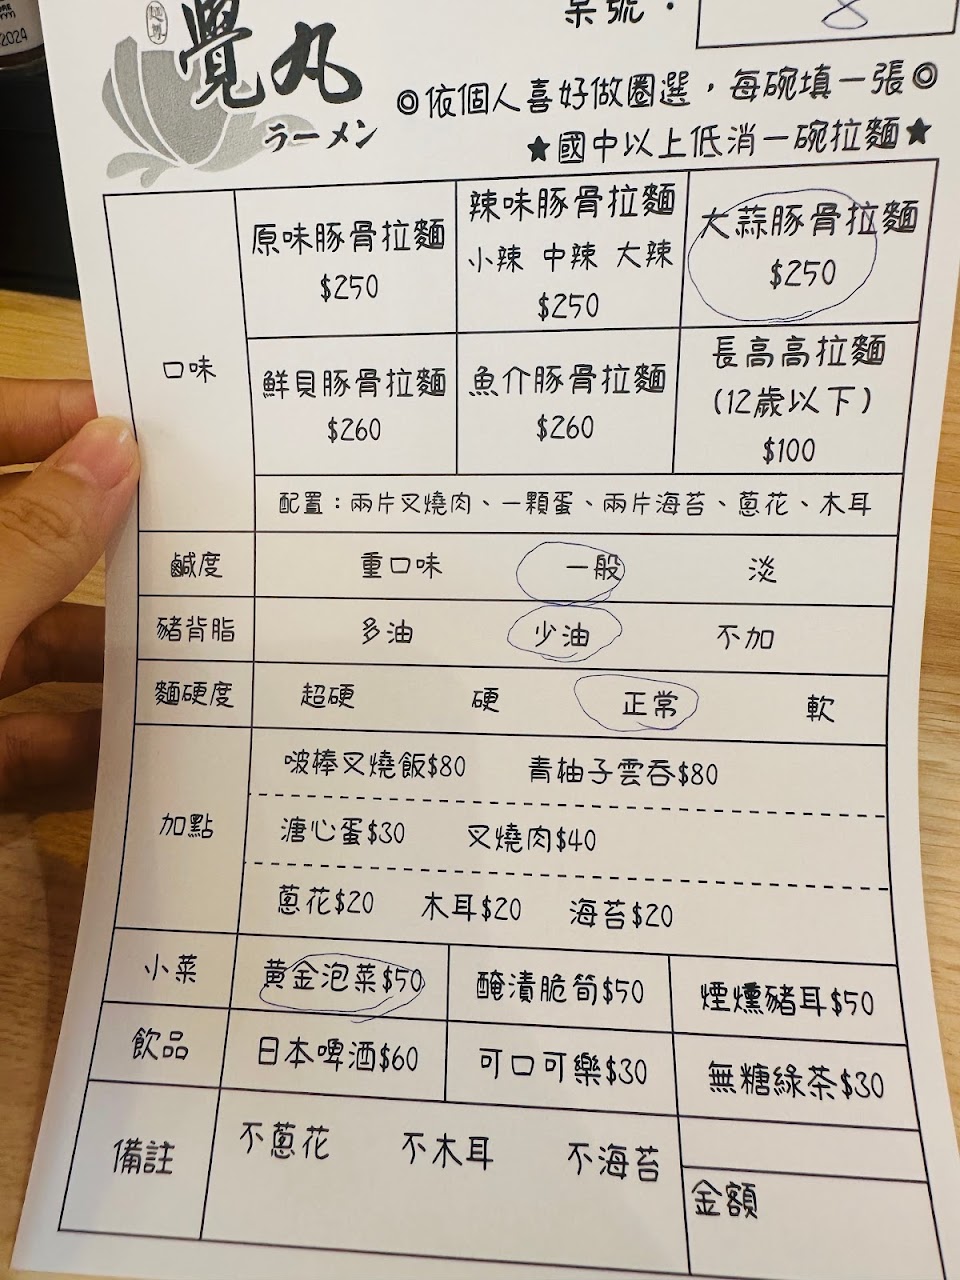 2024
覺丸
ラーメン
桌號：
8
◎依個人喜好做圈選，每碗填一張◎
★國中以上低消一碗拉麵★
口味
原味豚骨拉麵
$250
辣味豚骨拉麵
小辣 中辣 大辣
$250
大蒜豚骨拉麵
$250
鮮貝豚骨拉麵
$260
魚介豚骨拉麵
$260
長高高拉麵
(12歲以下)
$100
配置：兩片叉燒肉、一顆蛋、兩片海苔、蔥花、木耳
鹹度 重口味 一般 淡
豬背脂 多油 少油 不加
麵硬度 超硬 硬 正常 軟
加點
啵棒叉燒飯$80 青柚子雲吞$80
溏心蛋$30 叉燒肉$40
蔥花$20 木耳$20 海苔$20
小菜 黃金泡菜$50 醃漬脆筍$50 煙燻豬耳$50
飲品 日本啤酒$60 可口可樂$30 無糖綠茶$30
備註 不蔥花 不木耳 不海苔
金額